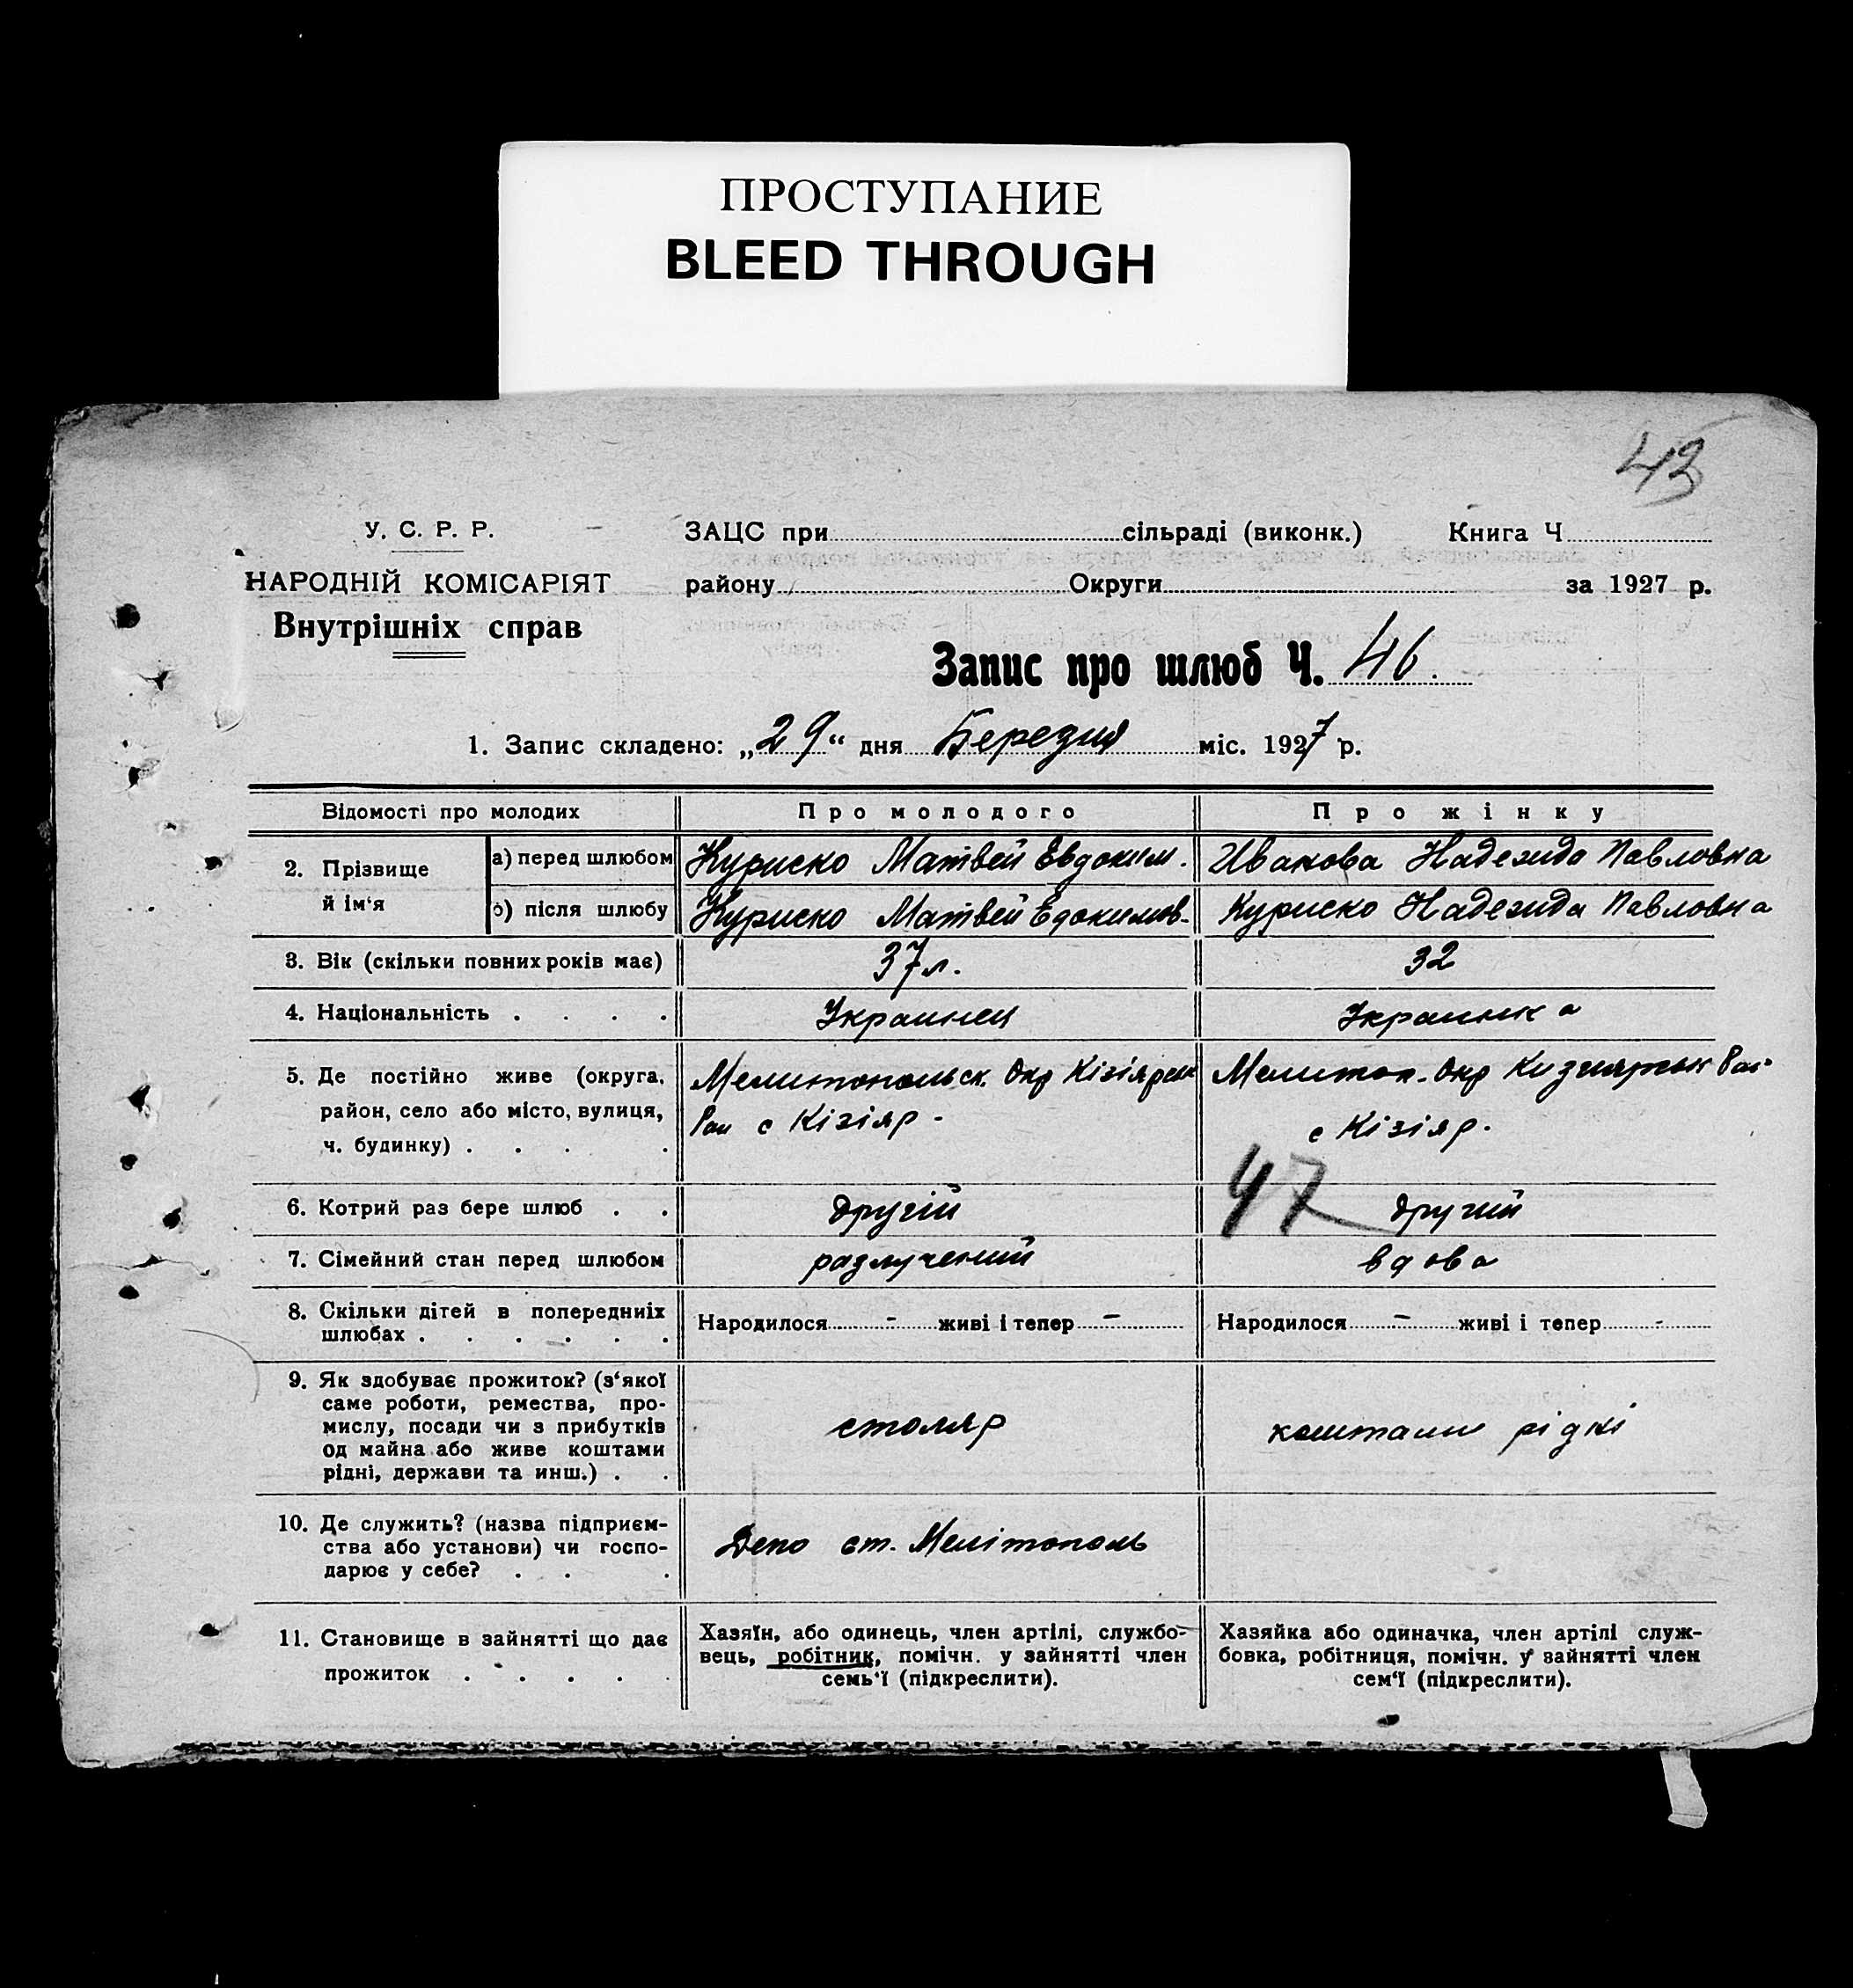 ПРОСТУПАНИЕ
BLEED THROUGH
43
У. С. Р. Р.
НАРОДНІЙ КОМІСАРІЯТ
Внутрішніх справ
ЗАЦС при сільраді (виконк.) Книга Ч
району Округи за 1927 р.
Запис про шлюб Ч. 46.
1. Запис складено: „29“ дня Березня міс. 1927 р.
Відомості про молодих Про молодого Про жінку
2. Прізвище й ім‘я
а) перед шлюбом Куриско Матвей Евдоким. Иванова Надежида Павловна
б) після шлюбу Куриско Матвей Едокимов- Куриско Надежида Павловна
3. Вік (скільки повних років має) 37 л. 32
4. Національність . . . . Украинец Украинка
5. Де постійно живе (округа,
район, село або місто, вулиця,
ч. будинку) . . . .
Мелитопольск. Окр Кізіярск
Рай с Кізіяр -
Мелитоп. Окр Кизиярск Рай
с Кізіяр.
47
6. Котрий раз бере шлюб . . другій другий
7. Сімейний стан перед шлюбом разлучений вдова
8. Скільки дітей в попередниіх
шлюбах . . . . . .
Народилося - живі і тепер -
Народилося - живі і тепер -
9. Як здобуває прожиток? (з‘якої
саме роботи, ремества, про-
мислу, посади чи з прибутків
од майна або живе коштами
рідні, держави та инш.) . .
столяр
коштами рідні
10. Де служить? (назва підприєм-
ства або установи) чи госпо-
дарює у себе? . . .
Депо ст. Мелітополь
11. Становище в зайнятті що дає
прожиток . . . . .
Хазяїн, або одинець, член артілі, службо-
вець, робітник, помічн. у зайнятті член
семь‘ї (підкреслити).
Хазяйка або одиначка, член артілі служ-
бовка, робітниця, помічн. у зайнятті член
сем‘ї (підкреслити).